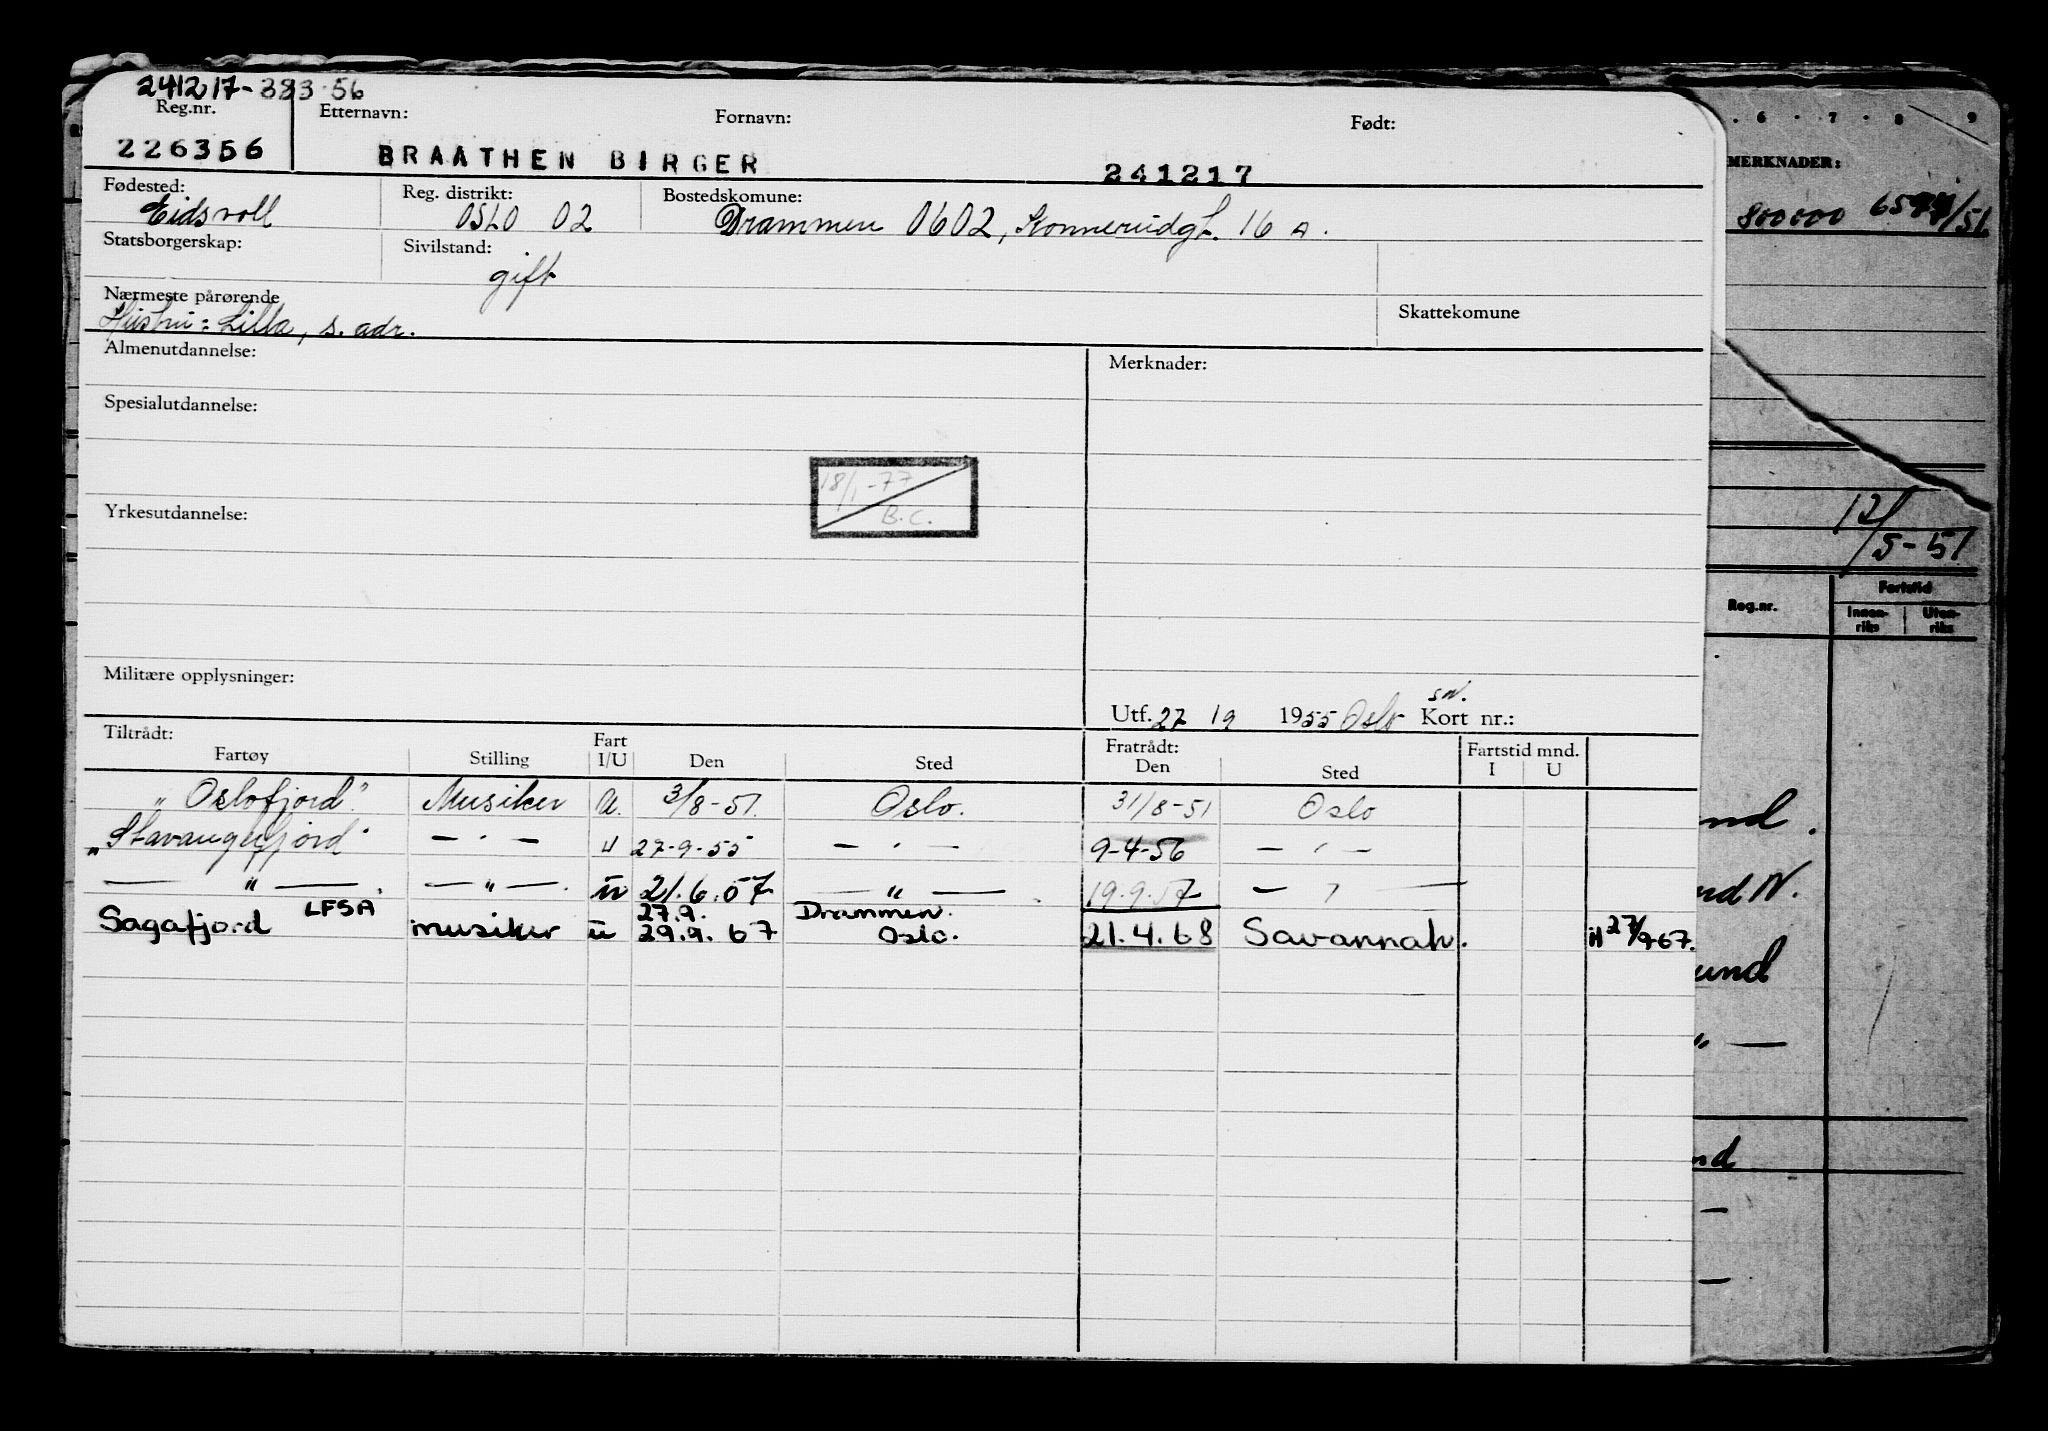 241217-383·56
Reg.nr. Etternavn: Fornavn: Født:
226356 BRAATHEN BIRGER 241217
Fødested: Reg. distrikt: Bostedskomune:
Eidsvoll OSLO 02 Drammen 0602, Konnerudgt. 16 A.
Statsborgerskap: Sivilstand:
gift
Nærmeste pårørende Skattekomune
Hustru: Lilla, s. adr.
Almenutdannelse: Merknader:
Spesialutdannelse:
18/1-77
B.C.
Yrkesutdannelse:
Militære opplysninger:
Utf. 27/9 1955 Oslo Kort nr.:
Tiltrådt: Fart Fratrådt: Fartstid mnd.
Fartøy Stilling I/U Den Sted Den Sted I U
"Oslofjord" Musiker U. 3/8-51. Oslo. 31/8-51 Oslo
"Stavangerfjord" — " — U 27-9-55 — " — 9-4-56 — " —
— " — . — " — . U 21.6.57 — " — . 19.9.57 — " —
Sagafjord LFSA musiker U 27.9. Drammen.
29.9.67 Oslo. 21.4.68 Savannah. 27/9-67.
. 6 . 7 . 8 9
MERKNADER:
800000
12/5-51
Reg.nr. Fartstid
Innen-riks Uten-riks
nd.
nd N.
und
" —
nd
—
—